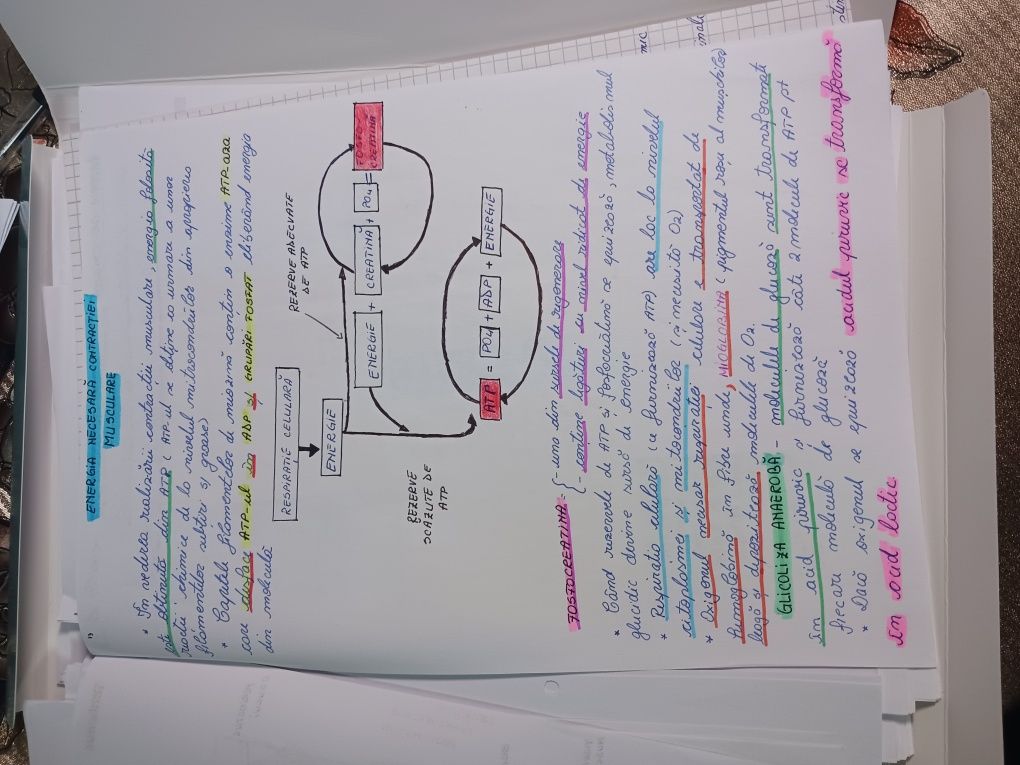 13
ENERGIA NECESARĂ CONTRACȚIEI
MUSCULARE
* În vederea realizării contracției musculare, energia folosită
este obținută din ATP (ATP-ul se obține ca urmare a unor
reacții chimice de la nivelul mitocondriilor din apropierea
filamentelor subțiri și groase)
* Capetele filamentelor de miozină conțin o enzimă ATP-aza
care desface ATP-ul în ADP și GRUPĂRI FOSFAT eliberând energia
din moleculă
RESPIRAȚIE CELULARĂ
ENERGIE
REZERVE ADECVATE
DE ATP
ENERGIE + CREATINĂ + PO4 = FOSFOCREATINĂ
REZERVE
SCĂZUTE DE
ATP
ATP = PO4 + ADP + ENERGIE
FOSFOCREATINA: - una din sursele de regenerare
- conține legături cu nivel ridicat de energie
* Când rezervele de ATP și fosfocreatină se epuizează, metabolismul
glucidic devine sursă de energie
* Respirația celulară (ce furnizează ATP) are loc la nivelul
citoplasmei și mitocondriilor (și necesită O2)
* Oxigenul necesar respirației celulare e transportat de
hemoglobină în fibre unde, MIOGLOBINA (pigmentul roșu al mușchilor)
leagă și depozitează molecule de O2.
GLICOLIZA ANAEROBĂ - molecule de glucoză sunt transformate
în acid piruvic și furnizează câte 2 molecule de ATP pt
fiecare moleculă de glucoză
* Dacă oxigenul se epuizează acidul piruvic se transformă
în acid lactic